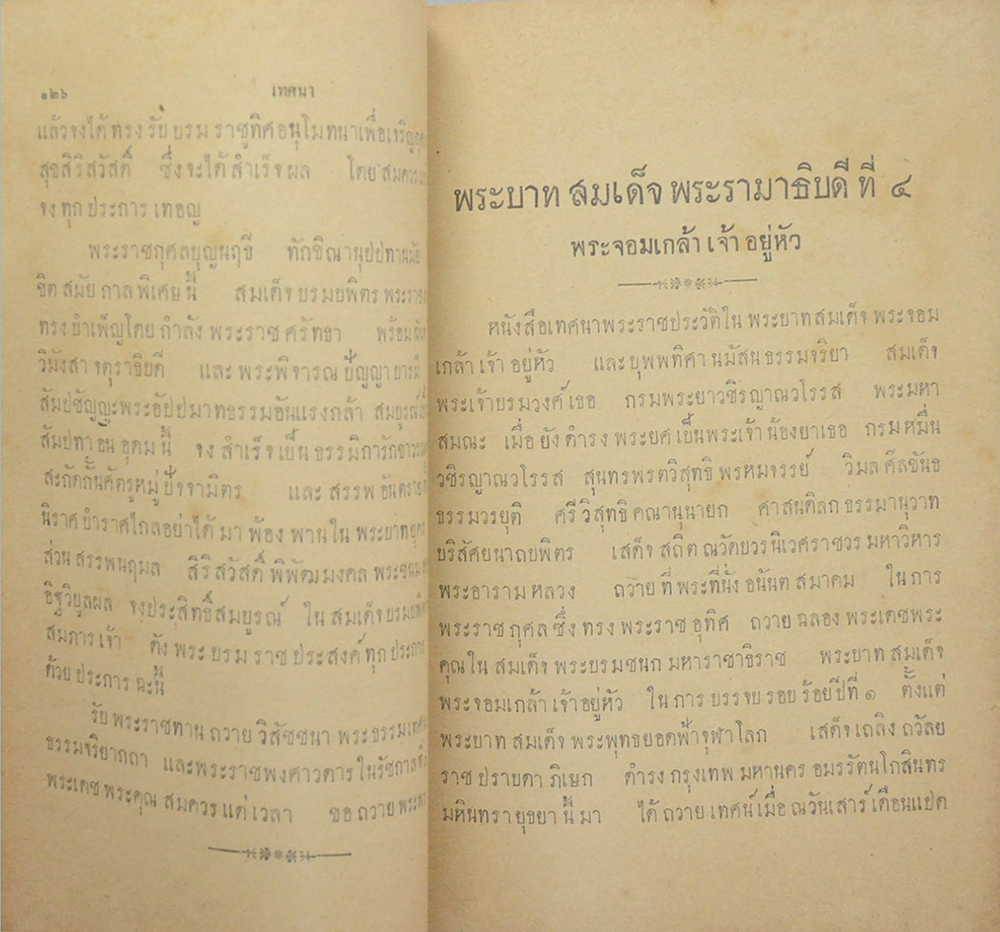 ๑๒๖ เทศนา
แล้วจงได้ทรงรับบรมราชูทิศอนุโมทนาเพื่อเจริญ
สุขสิริสวัสดิ์ ซึ่งจะได้สำเร็จผล โดยสมควร
จงทุกประการ เทอญ
พระราชกุศลบุญนฤธี ทักขิณานุปปทานมัย
ขิตสมัยกาลพิเศษนี้ สมเด็จบรมบพิตร พระราช
ทรงบำเพ็ญโดยกำลังพระราชศรัทธา พร้อม
วิมังสา จตุราธิบดี และพระพิจารณปัญญาบารมี
สัมปชัญญะพระอัปปมาทธรรมอันแรงกล้า สมบุรณ์
สัมปทาอันอุดมนี้ จงสำเร็จเป็นธรรมิการักขา
สะกัดกั้นศัตรูหมู่ปัจจามิตร และสรรพอันตราย
นิราศบำราศไกลอย่าได้มาพ้องพานในพระบาท
ส่วนสรรพนฤมล สิริสวัสดิ์พิพัฒมงคล พระชนม
อิฐวิบูลผล จงประสิทธิ์สมบูรณ์ ในสมเด็จบรมบพิตร
สมภารเจ้า ดังพระบรมราชประสงค์ทุกประการ
ด้วยประการฉะนี้
รับพระราชทานถวายวิสัชชนา พระธรรมเทศ
ธรรมจริยากถา และพระราชพงศาวดารในรัชกาลที่
พระเดชพระคุณสมควรแต่เวลา ขอถวายพระพร
พระบาทสมเด็จพระรามาธิบดีที่ ๔
พระจอมเกล้าเจ้าอยู่หัว
หนังสือเทศนาพระราชประวัติในพระบาทสมเด็จพระจอม
เกล้าเจ้าอยู่หัว และบุพพทิศานมัสนธรรมจริยา สมเด็จ
พระเจ้าบรมวงศ์เธอ กรมพระยาวชิรญาณวโรรส พระมหา
สมณะ เมื่อยังดำรงพระยศเป็นพระเจ้าน้องยาเธอ กรมหมื่น
วชิรญาณวโรรส สุนทรพรตวิสุทธิพรหมจรรย์ วิมลศีลขันธ
ธรรมวรยุติ ศรีวิสุทธิคณานุนายก ศาสนดิลกธรรมานุวาท
บริสัยนาถบพิตร เสด็จสถิตณวัดบวรนิเวศราชวรมหาวิหาร
พระอารามหลวง ถวายที่พระที่นั่งอนันตสมาคม ในการ
พระราชกุศลซึ่งทรงพระราชอุทิศ ถวายฉลองพระเดชพระ
คุณในสมเด็จพระบรมชนกมหาราชาธิราช พระบาทสมเด็จ
พระจอมเกล้าเจ้าอยู่หัว ในการบรรจบรอบร้อยปีที่ ๑ ตั้งแต่
พระบาทสมเด็จพระพุทธยอดฟ้าจุฬาโลก เสด็จเถลิงถวัลย
ราชปราบดาภิเษก ดำรงกรุงเทพมหานครอมรรัตนโกสินทร
มหินทรายุธยานี้มา ได้ถวายเทศน์เมื่อณวันเสาร์เดือนแปด